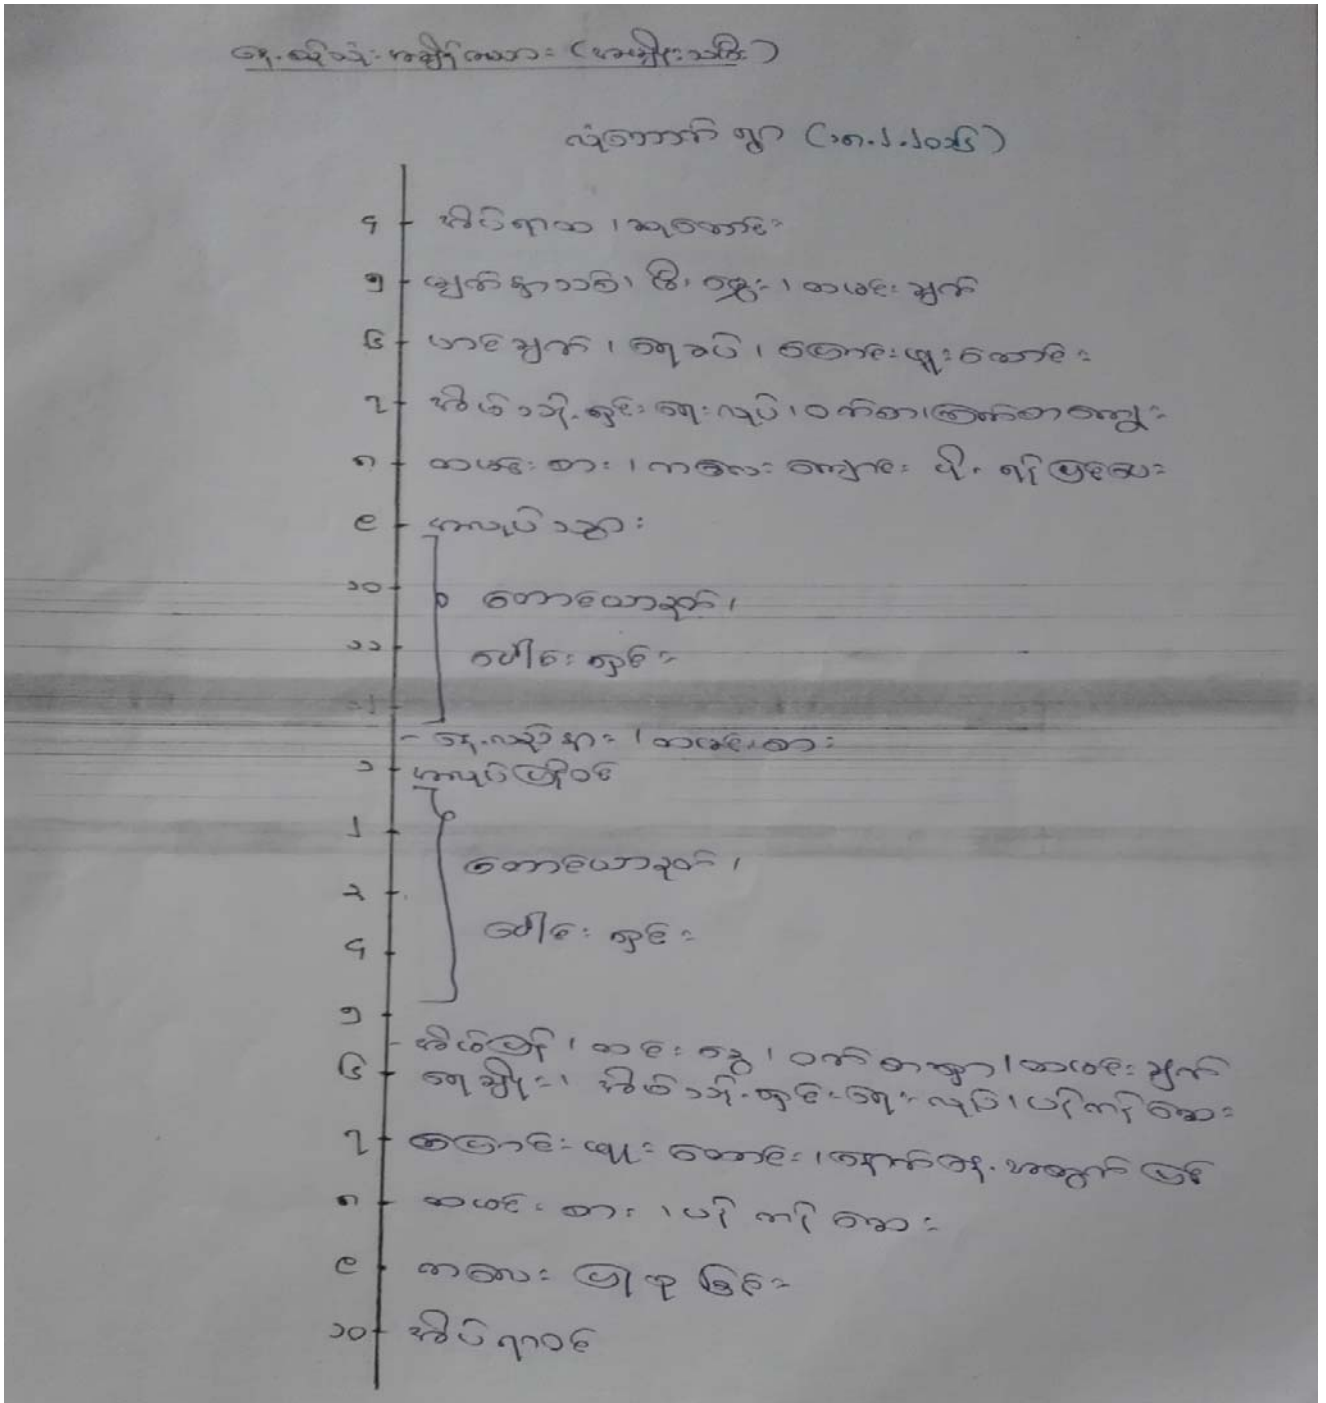 နေ့စဉ်သုံး အချိန်ဇယား (အမျိုးသမီး)
လုံတောက် ရွာ (၁၈.၂.၂၀၁၆)
၄ အိပ်ရာထ ၊ ဆုတောင်း
၅ မျက်နှာသစ်၊ မီး မွှေး ၊ ထမင်း ချက်
၆ ဟင်းချက် ၊ ရေခပ် ၊ ပြောင်းဖူးထောင်း
၇ အိမ်သန့်ရှင်းရေးလုပ် ၊ ဝက်စာ၊ကြက်စာကျွေး
၈ ထမင်း စား ၊ ကလေး ကျောင်း ပို့ရန် ပြင်ပေး
၉ ယာလုပ်သွား
၁၀ တောင်ယာခုတ် ၊
၁၁ ပေါင်း ရှင်း
၁၂
- နေ့လည်နား ၊ ထမင်းစား
၁ ယာလုပ်ပြန်ဝင်
၂
တောင်ယာခုတ် ၊
၃
ပေါင်း ရှင်း
၄
၅
- အိမ်ပြန် ၊ ထင်းခွေ ၊ ဝက်စာရှာ ၊ ထမင်းချက်
၆ ရေချိုး ၊ အိမ်သန့်ရှင်းရေးလုပ် ၊ ပန်ကန်ဆေး
၇ ပြောင်းဖူး ထောင်း ၊ နောက်နေ့အတွက် ပြင်
၈ ထမင်း စား ၊ ပန်ကန်ဆေး
၉ ကလေး ပြုစု ခြင်း
၁၀ အိပ်ရာဝင်